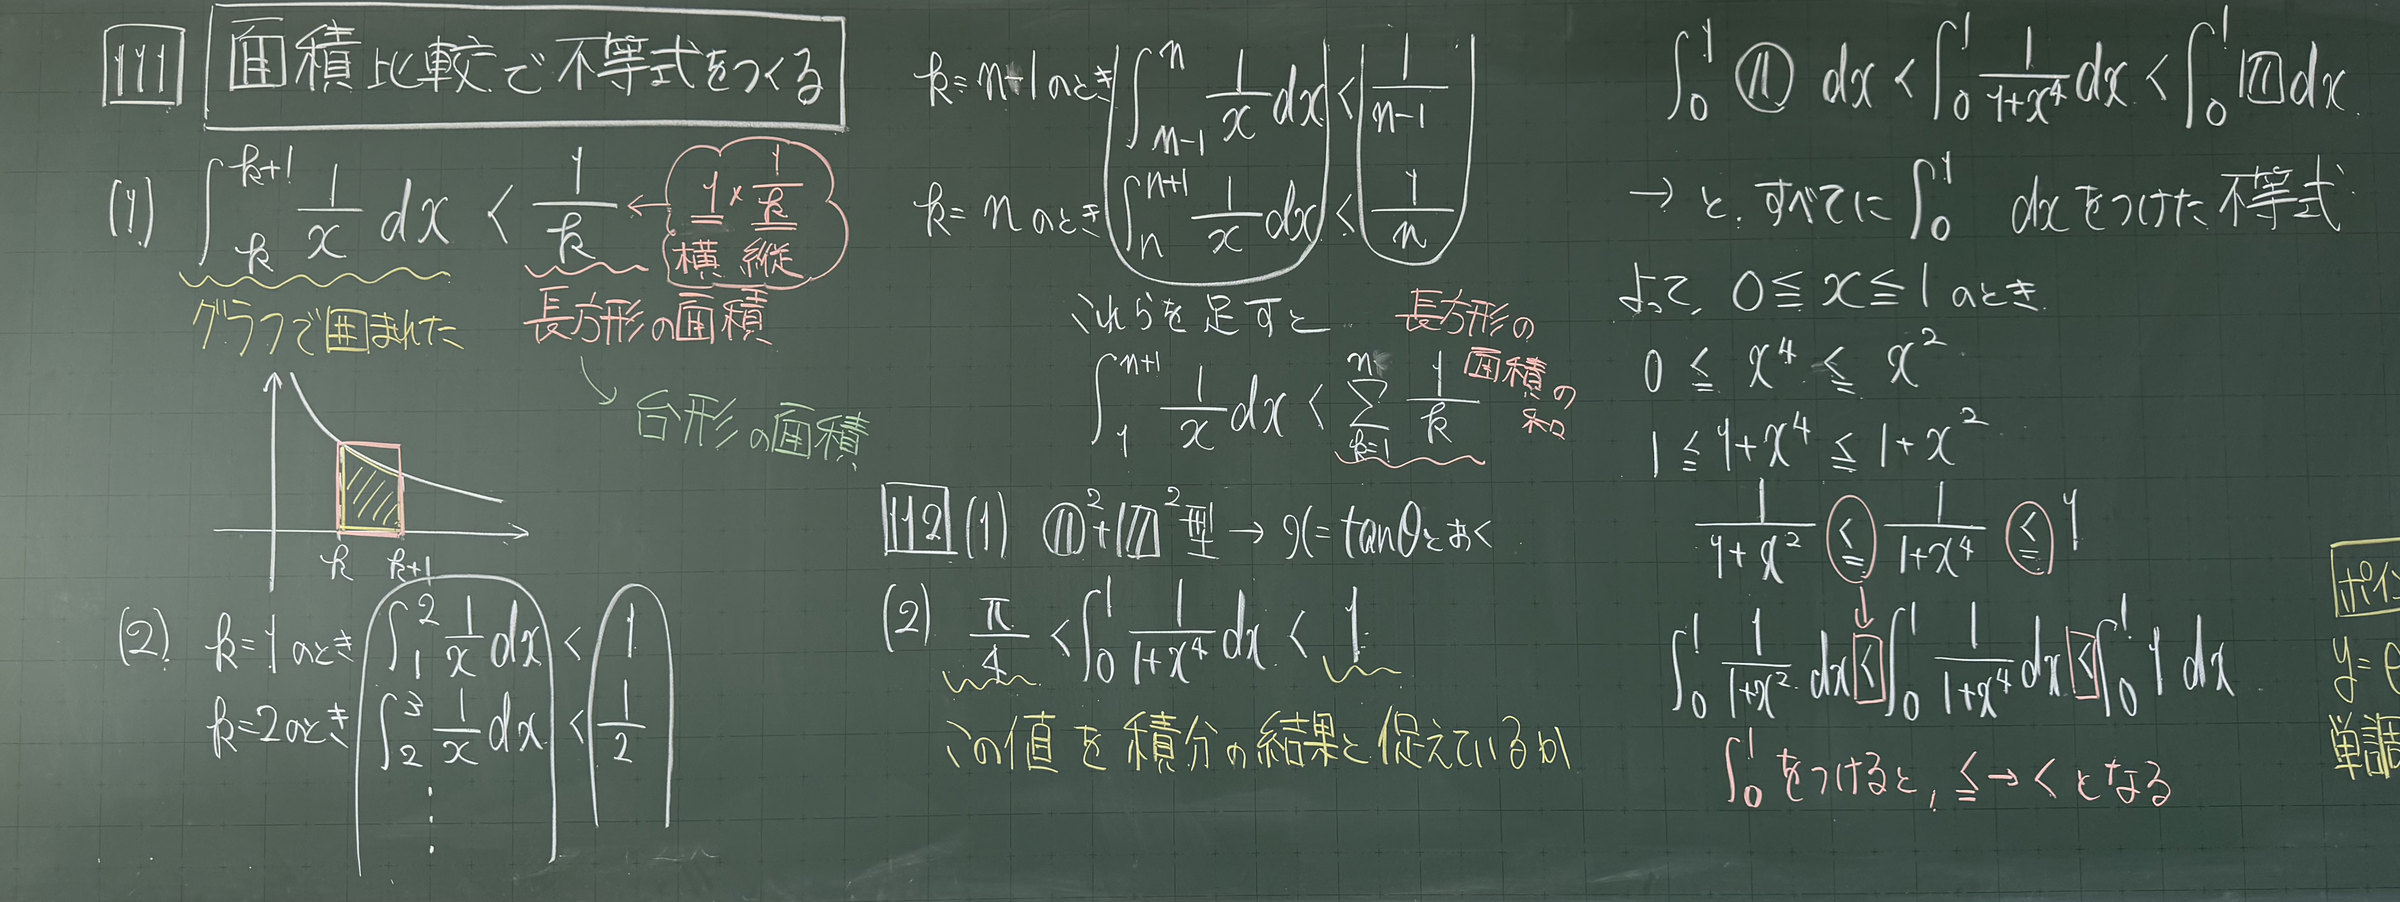 111 面積比較で不等式をつくる
(1) ∫_k^{k+1} 1/x dx < 1/k ← 1 × 1/k
横 縦
グラフで囲まれた 長方形の面積
台形の面積
k k+1
(2) k=1のとき ∫_1^2 1/x dx < 1
k=2のとき ∫_2^3 1/x dx < 1/2
⋮
k=n-1のとき ∫_{n-1}^n 1/x dx < 1/(n-1)
k=nのとき ∫_n^{n+1} 1/x dx < 1/n
これらを足すと
∫_1^{n+1} 1/x dx < Σ_{k=1}^n 1/k
長方形の
面積の
和
112 (1) ○²+□²型 → x=tanθとおく
(2) π/4 < ∫_0^1 1/(1+x⁴) dx < 1
この値を積分の結果と捉えているか
∫_0^1 ○ dx < ∫_0^1 1/(1+x⁴) dx < ∫_0^1 □ dx
→ と、すべてに ∫_0^1 dxをつけた不等式
よって、0≦x≦1のとき
0 ≦ x⁴ ≦ x²
1 ≦ 1+x⁴ ≦ 1+x²
1/(1+x²) ≦ 1/(1+x⁴) ≦ 1
∫_0^1 1/(1+x²) dx < ∫_0^1 1/(1+x⁴) dx < ∫_0^1 1 dx
∫_0^1 をつけると、≦→<となる
ポイン
y=e
単調